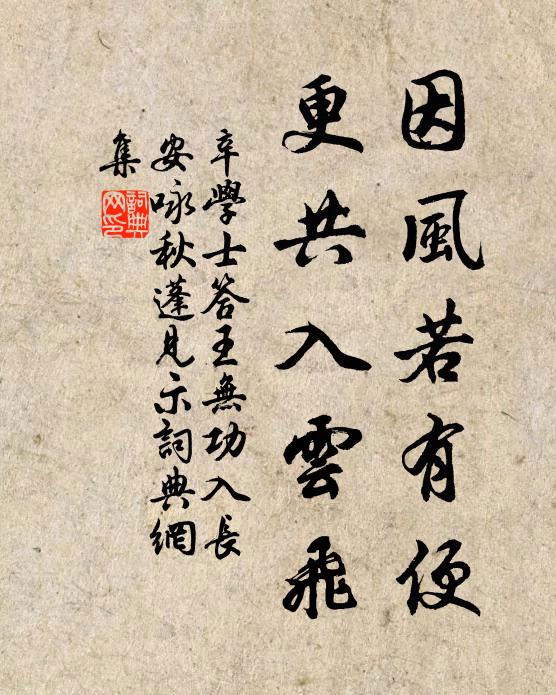 因風若有便
更共入雲飛
辛學士答王無功入長
安咏秋蓬見示詞典網
集
詞典
网印